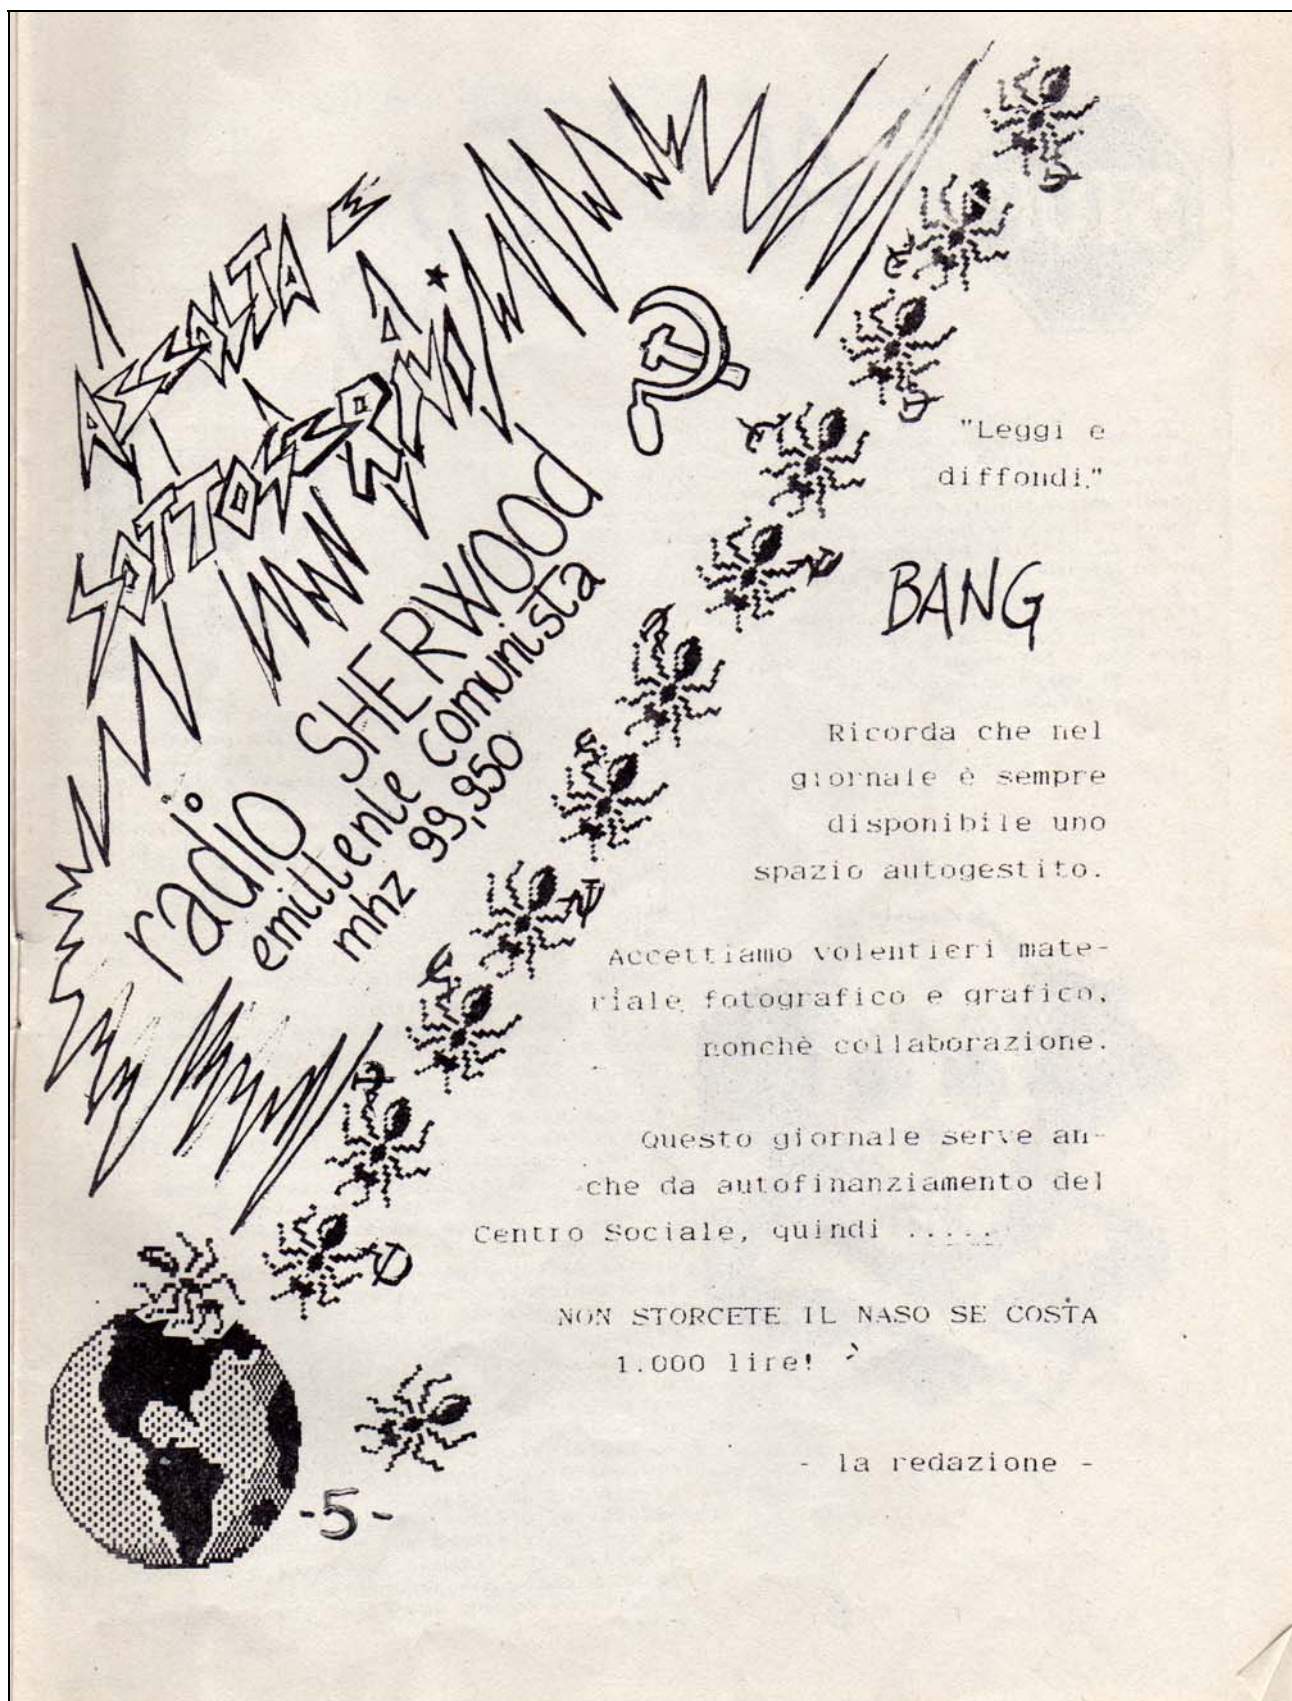 ASSOLTA E
radio
SHERWOOD
emittente comunista
mhz 99,950
"Leggi e
diffondi."
BANG
Ricorda che nel
giornale è sempre
disponibile uno
spazio autogestito.
Accettiamo volentieri mate-
riale fotografico e grafico,
nonchè collaborazione.
Questo giornale serve an-
che da autofinanziamento del
Centro Sociale, quindi .....
NON STORCETE IL NASO SE COSTA
1.000 lire!
- la redazione -
-5-